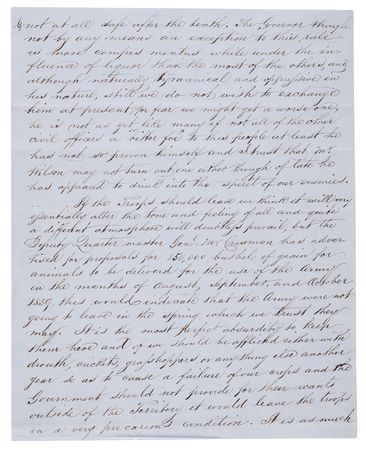 not at all safe after the tenth. The Governor though
not by any means an exception to this rule
is more compos mentus while under the in-
fluence of liquor than the most of the others, and
although naturally tyrannical and oppressive in
his nature, still we do not wish to exchange
him at present, for fear we might get a worse one,
he is not as yet like many if not all of the other
civil officers a "bitter foe" to this people at least he
has not so proven himself and I trust that Mr.
Wilson may not turn out one either though of late he
has appeard to drink into the spirit of our enemies.
If the Troops should leave we think it will very
essentially alter the tone and feeling of all and quite
a different atmosphere will doubtless prevail, but the
Deputy Quarter master Genl. Mr. Crosman has adver
tised for proposals for 150,000 bushel of grain for
animals to be deliverd for the use of the Army
in the months of August, September, and October
1859, this would indicate that the Army were not
going to leave in the spring which we trust they
may. It is the most perfect absurdety to keep
them here and if we should be afflicted either with
drouth, crickets, grasshoppers or any thing else another
year so as to cause a failure of our crops and the
Government should not provide for their wants
outside of the Territory it would leave the troops
in a very precarious condition. It is as much